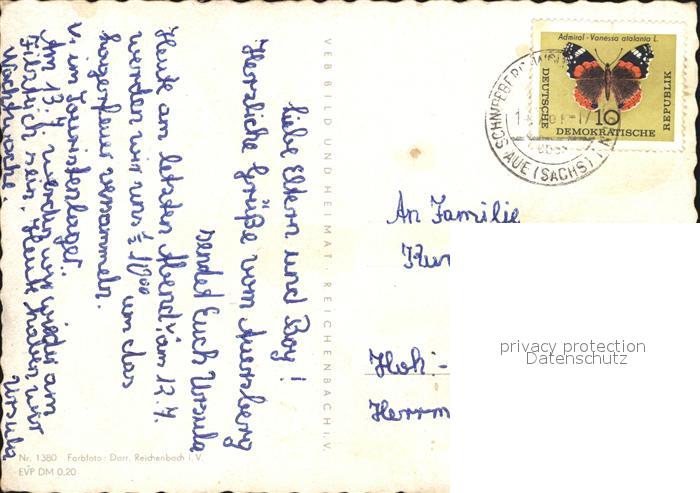 liebe Eltern und Boy!
Herzliche Grüße vom Auersberg
sendet Euch Ursula
Heute am letzten Abend, am 12.7.
werden wir uns ½ 10 00 um das
Lagerfeuer versammeln.
im Touristenlager.
Am 13.7. werden wir wieder am
sein. Heute haben wir
Nachtwache.
Ursula
VEB BILD UND HEIMAT · REICHENBACH i. V.
Nr. 1380 Farbfoto: Darr, Reichenbach i. V.
EVP DM 0,20
Admiral - Vanessa atalanta L.
DEUTSCHE
10
DEMOKRATISCHE
REPUBLIK
AUE (SACHS)
An Familie
Kur
Hoh-
Herrm
privacy protection
Datenschutz